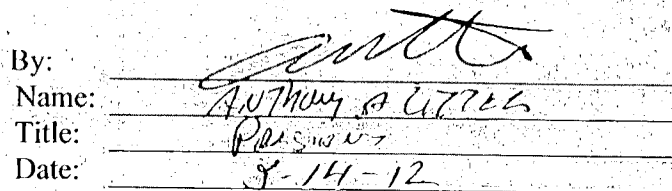 By:
Name: Anthony A
Title: President
Date: -14-12